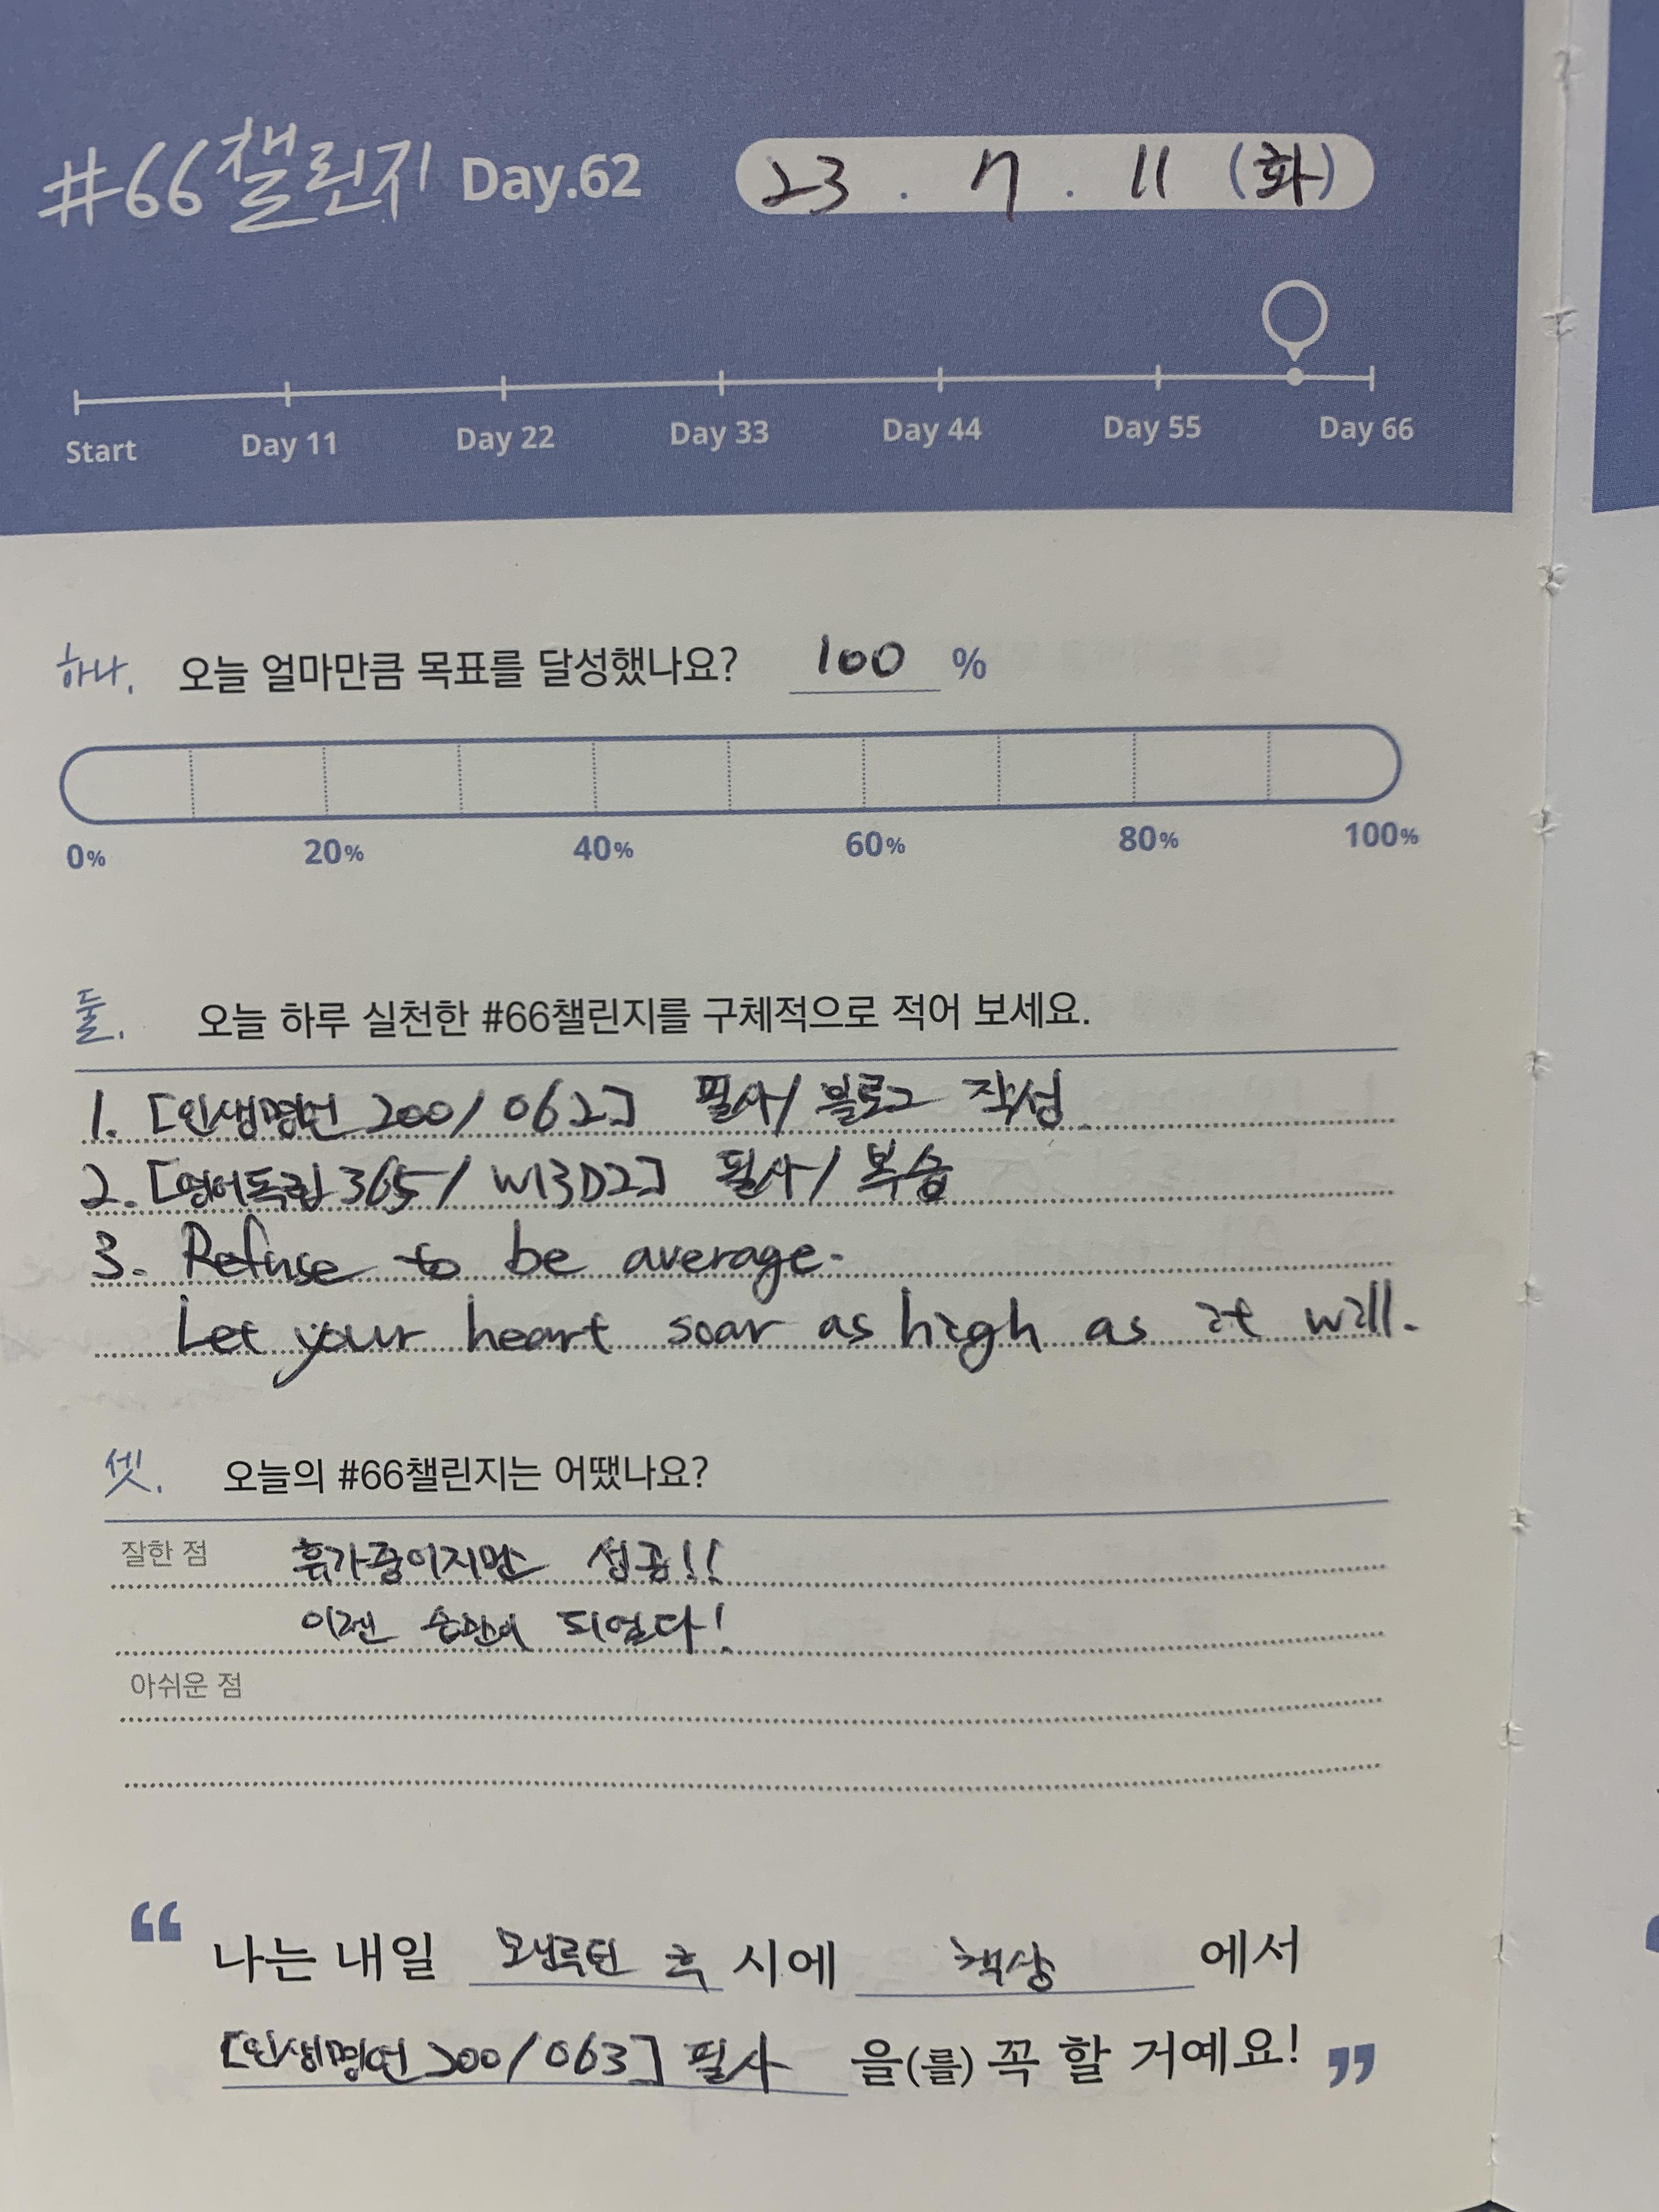 #66챌린지 Day.62 23 . 7 . 11 (화)
Start Day 11 Day 22 Day 33 Day 44 Day 55 Day 66
하나. 오늘 얼마만큼 목표를 달성했나요? 100 %
0% 20% 40% 60% 80% 100%
둘. 오늘 하루 실천한 #66챌린지를 구체적으로 적어 보세요.
1. [인생명언 200/062] 필사/블로그 작성
2. [영어독립 365/W13D2] 필사/복습
3. Refuse to be average.
Let your heart soar as high as it will.
셋. 오늘의 #66챌린지는 어땠나요?
잘한 점 휴가중이지만 성공!!
이젠 습관이 되었다!
아쉬운 점
“ 나는 내일 모닝루틴 후 시에 책상 에서
[인생명언 200/063] 필사 을(를) 꼭 할 거예요! ”